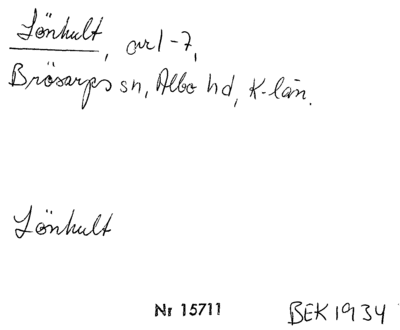 Lönhult, avl-7,
Brösarps sn, Albo hd, K-län.
Lönhult
Nr 15711 BEK 1934